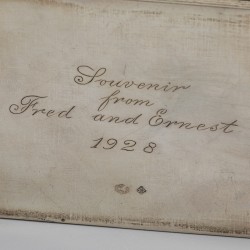 Souvenir
from
Fred and Ernest
1928